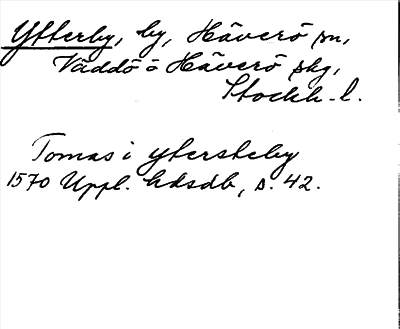 Ytterby, by, Häverö sn,
Väddö o Häverö skg,
Stockh. l.
Tomas i Ytersteby
1570 Uppl. hdsdb, s. 42.